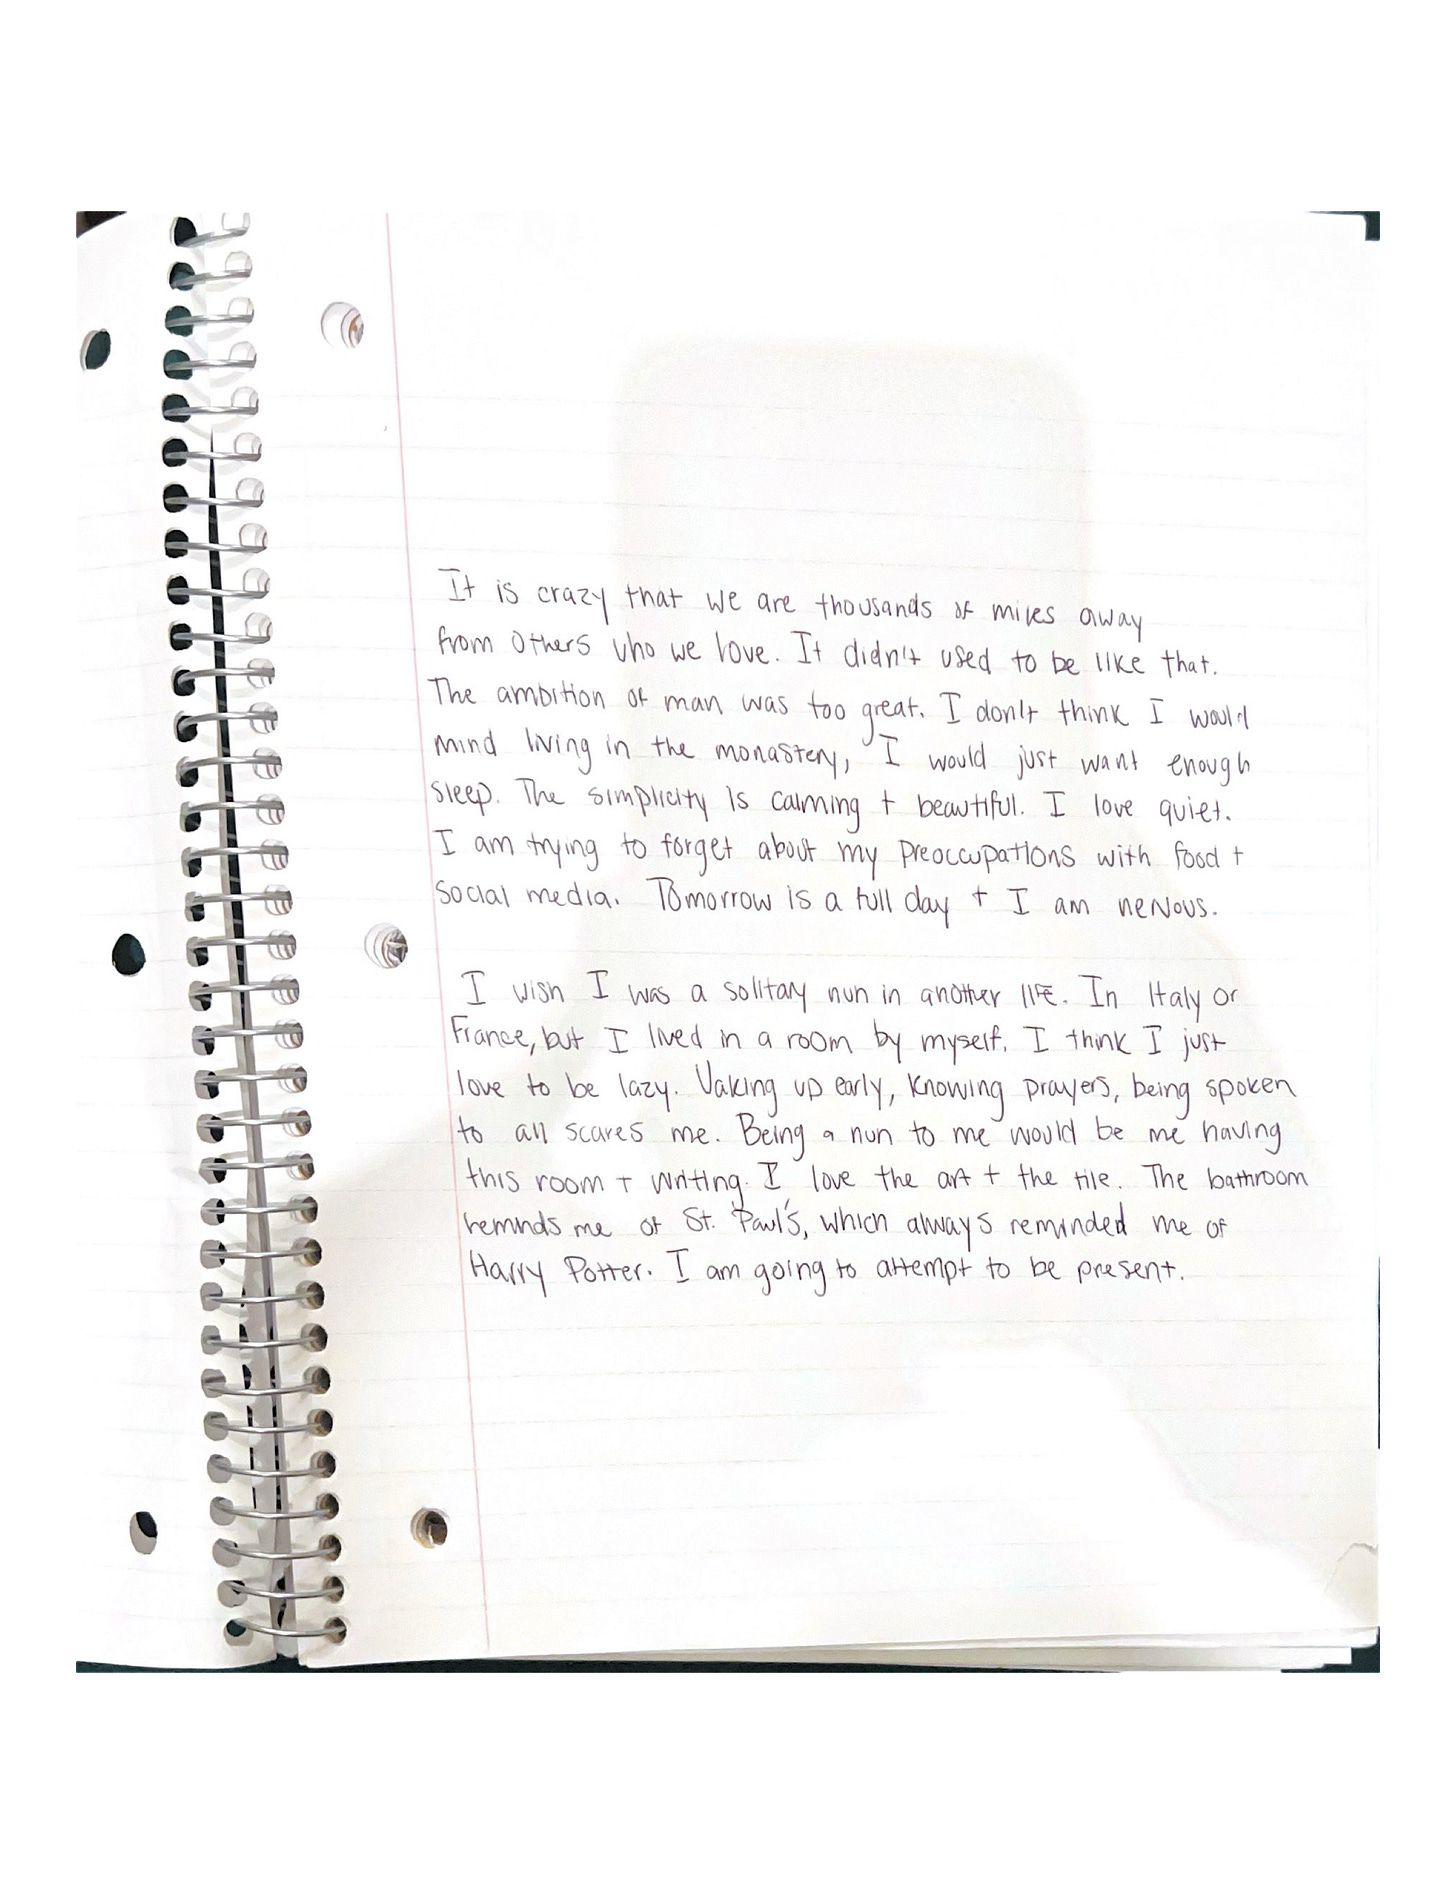 It is crazy that we are thousands of miles away
from others who we love. It didn't used to be like that.
The ambition of man was too great. I don't think I would
mind living in the monastery, I would just want enough
sleep. The simplicity is calming + beautiful. I love quiet.
I am trying to forget about my preoccupations with food +
social media. Tomorrow is a full day + I am nervous.
I wish I was a solitary nun in another life. In Italy or
France, but I lived in a room by myself. I think I just
love to be lazy. Waking up early, knowing prayers, being spoken
to all scares me. Being a nun to me would be me having
this room + writing. I love the art + the tile. The bathroom
reminds me of St. Paul's, which always reminded me of
Harry Potter. I am going to attempt to be present.